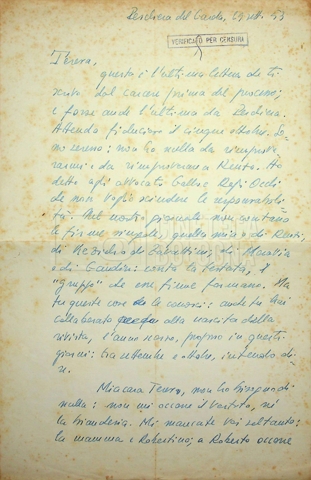 Peschiera del Garda, 29 sett. 53
VERIFICATO PER CENSURA
Teresa,
questa è l'ultima lettera che ti
scrivo dal carcere prima del processo;
e forse anche l'ultima da Peschiera.
Attendo fiducioso il cinque ottobre. So-
no sereno: non ho nulla da rimprove-
rarmi e da rimproverare a Renzo. Ho
detto agli avvocati
che non voglio scindere le responsabili-
tà. Nel nostro giornale non contano
le firme singole, quella mia o di Renzi,
di
e di Gandin: conta la testata, il
"gruppo" che esse firme formano. Ma
tu queste cose le conosci: anche tu hai
collaborato alla nascita della
rivista, l'anno scorso, proprio in questi
giorni: tra settembre e ottobre, intendo di-
re.
Mia cara Teresa, non ho bisogno di
nulla: non mi occorre il vestito, né
la biancheria. Mi mancate voi soltanto:
la mamma e Robertino; a Roberto occorre